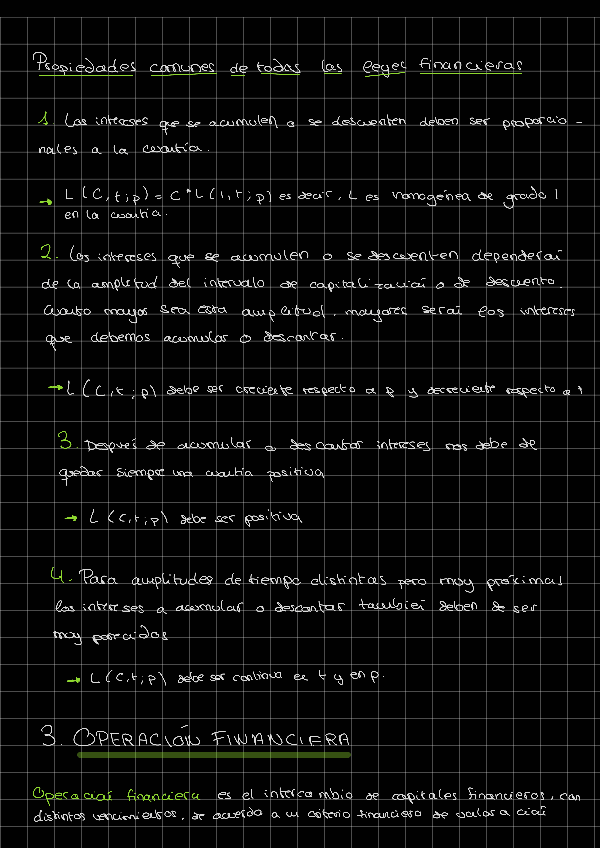 Propiedades comunes de todas las leyes financieras
1. Los intereses que se acumulen o se descuenten deben ser proporcio-
nales a la cuantía.
→ L(C,t;p) = C*L(1,t;p) es decir, L es homogénea de grado 1
en la cuantía.
2. Los intereses que se acumulen o se descuenten dependerán
de la amplitud del intervalo de capitalización o de descuento.
Cuanto mayor sea esta amplitud, mayores serán los intereses
que debemos acumular o descontar.
→ L(C,t;p) debe ser creciente respecto a p y decreciente respecto a t
3. Después de acumular o descontar intereses nos debe de
quedar siempre una cuantía positiva
→ L(C,t;p) debe ser positiva
4. Para amplitudes de tiempo distintas pero muy próximas
los intereses a acumular o descontar también deben de ser
muy parecidos
→ L(C,t;p) debe ser continua en t y en p.
3. OPERACIÓN FINANCIERA
Operación financiera es el intercambio de capitales financieros, con
distintos vencimientos, de acuerdo a un criterio financiero de valoración